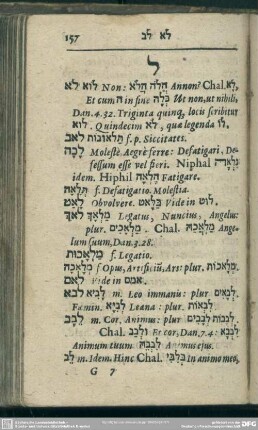 157 לא לב
ל
לוא לא Non: הֲלֹה הֲלֹא Annon? Chal. לָא.
Et cum ה in fine כְּלָה Ut non, ut nihili,
Dan. 4. 32. Triginta quinq; locis scribitur
לוא. Quindecim לֹא, quæ legenda לוֹ.
לאב תלאובות f. p. Siccitates.
לָאָה Molestè Ægrè ferre: Defatigari. De-
fessum esse vel fieri. Niphal נִלְאָה
idem. Hiphil הֶלְאָה Fatigare.
תְּלָאָה f. Defatigatio. Molestia.
לָאַט Obvolvere. בַּלָּאט Vide in לוּט.
לאך מַלְאָךְ Legatus, Nuncius, Angelus:
plur. מַלְאָכִים. Chal. מַלְאֲכֵהּ Ange-
lum suum, Dan. 3. 28.
מַלְאֲכוּת f. Legatio.
מְלָאכָה f. Opus, Artificiũ, Ars: plur. מַלְאָכוֹת.
לאם Vide in אמם.
לבא לָבִיא m. Leo immanis: plur. לְבָאִים.
Fœmin. לְבִיא Leæna: plur. לְבָאוֹת.
לֵבָב m. Cor, Animus: plur. לְבָבִים לְבָבוֹת.
Chal. וּלְבַב Et cor, Dan. 7. 4. לִבְבָא
Animum tuum. לִבְבֵהּ Animus ejus.
לֵב m. Idem. Hinc Chal. בְּלִבִּי In animo meo,
G 7